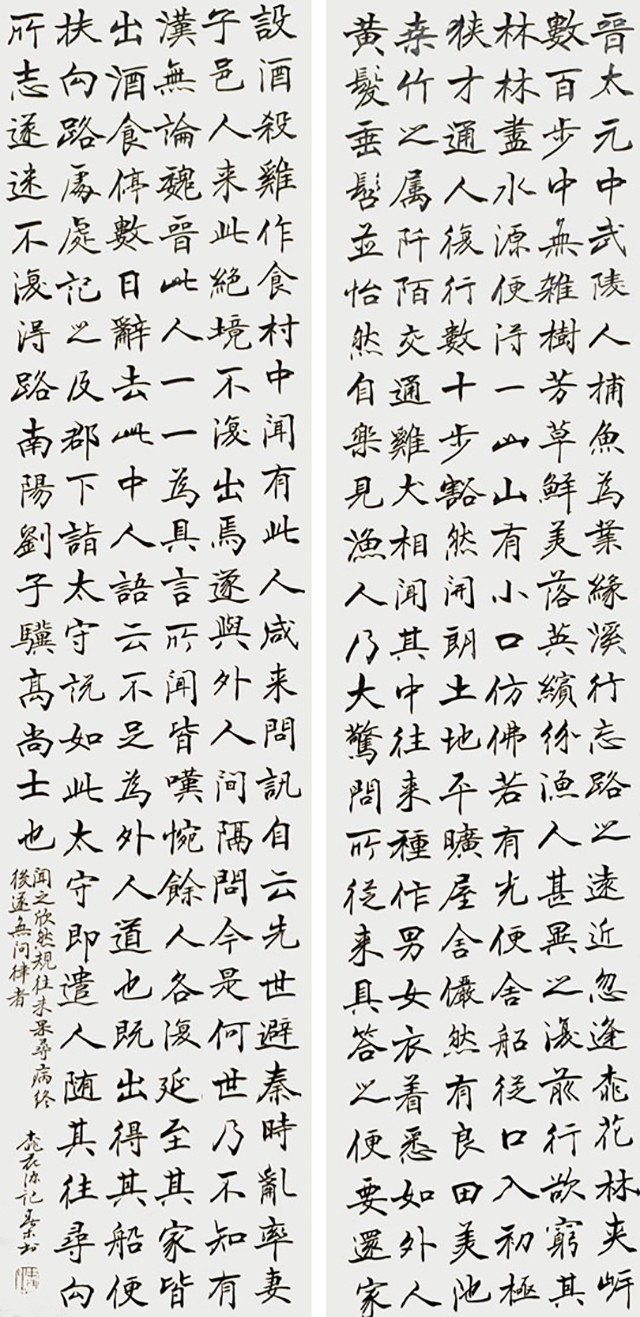 晉太元中武陵人捕魚為業緣溪行忘路之遠近忽逢桃花林夾岸
數百步中無雜樹芳草鮮美落英繽紛漁人甚異之復前行欲窮其
林林盡水源便得一山山有小口仿佛若有光便舍船從口入初極
狹才通人復行數十步豁然開朗土地平曠屋舍儼然有良田美池
桑竹之属阡陌交通雞犬相闻其中往来種作男女衣着悉如外人
黃髮垂髫並怡然自樂見漁人乃大驚問所從来具答之便要還家
設酒殺雞作食村中闻有此人咸来問訊自云先世避秦時亂率妻
子邑人来此絕境不復出焉遂與外人间隔問今是何世乃不知有
漢無論魏晉此人一一為具言所闻皆嘆惋餘人各復延至其家皆
出酒食停數日辭去此中人語云不足為外人道也既出得其船便
扶向路處處記之及郡下詣太守説如此太守即遣人随其往尋向
所志遂迷不復得路南陽劉子驥高尚士也
闻之欣然規往未果尋病终
後遂無问律者
桃花源記